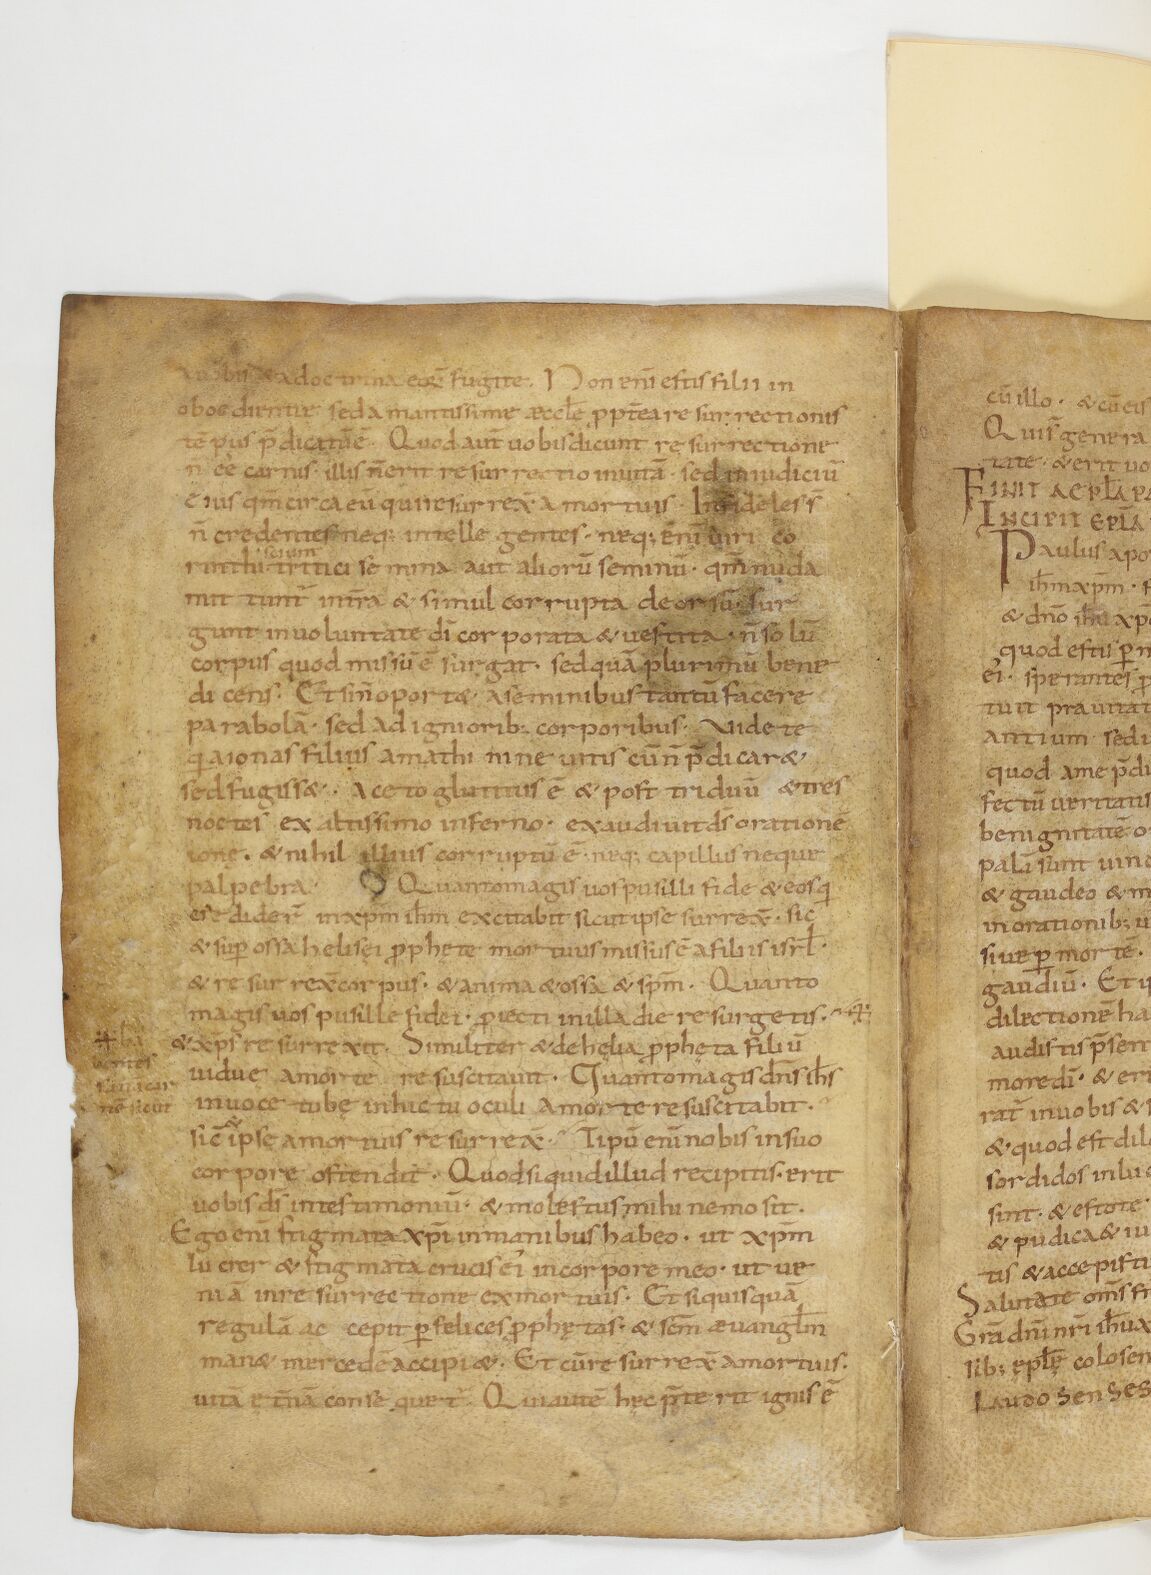 a uobis & a doctrina eorū fugite. Non enī estis filii in
oboedientie sed amantissime æccłe ꝓpt̄ea resurrectionis
tēpus p̄dicatū ē. Quod aut̄ uobis dicunt resurrectione
n̄ eē carnis. illis n̄ erit resurrectio in uitā. sed in iudiciū
eius qm̄ circa eū qui resurrex̄ a mortuis. Infideles s̄
n̄ credentes neq; intellegentes. neq; enī uiri co
rinthi sciunt tritici semina aut aliorū seminū. qm̄ nuda
mittunt̄ in t̄ra & simul corrupta deorsū. sur
gunt in uoluntate dī corporata & uestita. n̄ solū
corpus quod missū ē surgat. sed quā plurimū bene
dicens. Et si n̄ oport& a seminibus tantū facere
parabolā. sed a digniorib; corporibus. Videte
q̄a ionas filius amathi nineuitis cū n̄ p̄dicar&
sed fugiss&. A ceto gluttitus ē & post triduū & tres
noctes ex altissimo inferno. exaudiuit d̄s orationē
ionę. & nihil illius corruptū ē. neq; capillus neque
palpebra. Quanto magis uos pusilli fide & eos q̄
credider̄ in xp̄m ih̄m excitabit sicut ipse surrex̄. sic
& sup̄ ossa helisei ꝓphete mortuus missus ē a filiis isrł.
& resurrex̄ corpus. & anima & ossa & sp̄m. Quanto
magis uos pusille fidei. ꝓiecti in illa die resurgetis.
ha
bentes
sanā car
nē sicut
& xp̄s resurrexit. Similiter & de helia ꝓphęta filiū
uidue a morte resuscitauit. Quanto magis dn̄s ih̄s
in uoce tubę in hictu oculi a morte resuscitabit.
sic̄ & ipse a mortuis resurrex̄. Tipū enī nobis in suo
corpore ostendit. Quod si quid illud recipitis. erit
uobis d̄s in testimoniū. & molestus mihi nemo sit.
Ego enī stigmata xp̄i in manibus habeo. ut xp̄m
lucrer & stigmata crucis ei in corpore meo. ut ue
niā in resurrectione ex mortuis. Et si quisquā
regulā accepit p̄ felices ꝓphętas. & sc̄m æuangłm
man& mercedē accipi&. Et cū resurrex̄ a mortuis.
uitā ęt̄nā consequet̄. Qui autē hęc p̄terit ignis ē
cū illo. & cū eis
Quis̄ genera
tate. & erit uo
FINIT AEPŁA PA
INCIPIT EPŁA
Paulus apo
ih̄m xp̄m.
& dn̄o ih̄u xp̄o
quod estis p̄
ei. sperantes
tuit prauitat
antium sed
quod a me p̄di
fectū ueritatis
benignitatē o
palā sunt uinc
& gaudeo &
in orationib; u
siue p̄ mortē.
gaudiū. Et
dilectionē ha
audistis p̄sen
more dī. & eri
rat̄ in uobis &
& quod est
sordidos in luc
sint. & estote
& pudica & iu
tis & accepisti
Salutate om̄s
Gr̄a dn̄i n̄ri ih̄u
lib; epłę colosen
Laudosenses